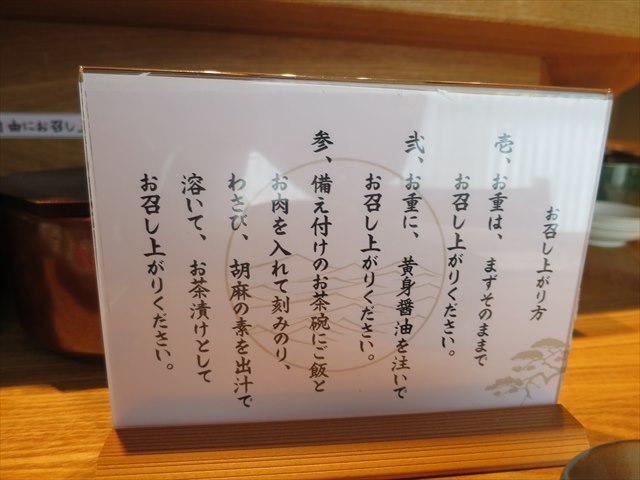 お召し上がり方
壱、お重は、まずそのままで
お召し上がりください。
弐、お重に、黄身醤油を注いで
お召し上がりください。
参、備え付けのお茶碗にご飯と
お肉を入れて刻みのり、
わさび、胡麻の素を出汁で
溶いて、お茶漬けとして
お召し上がりください。
由にお召し